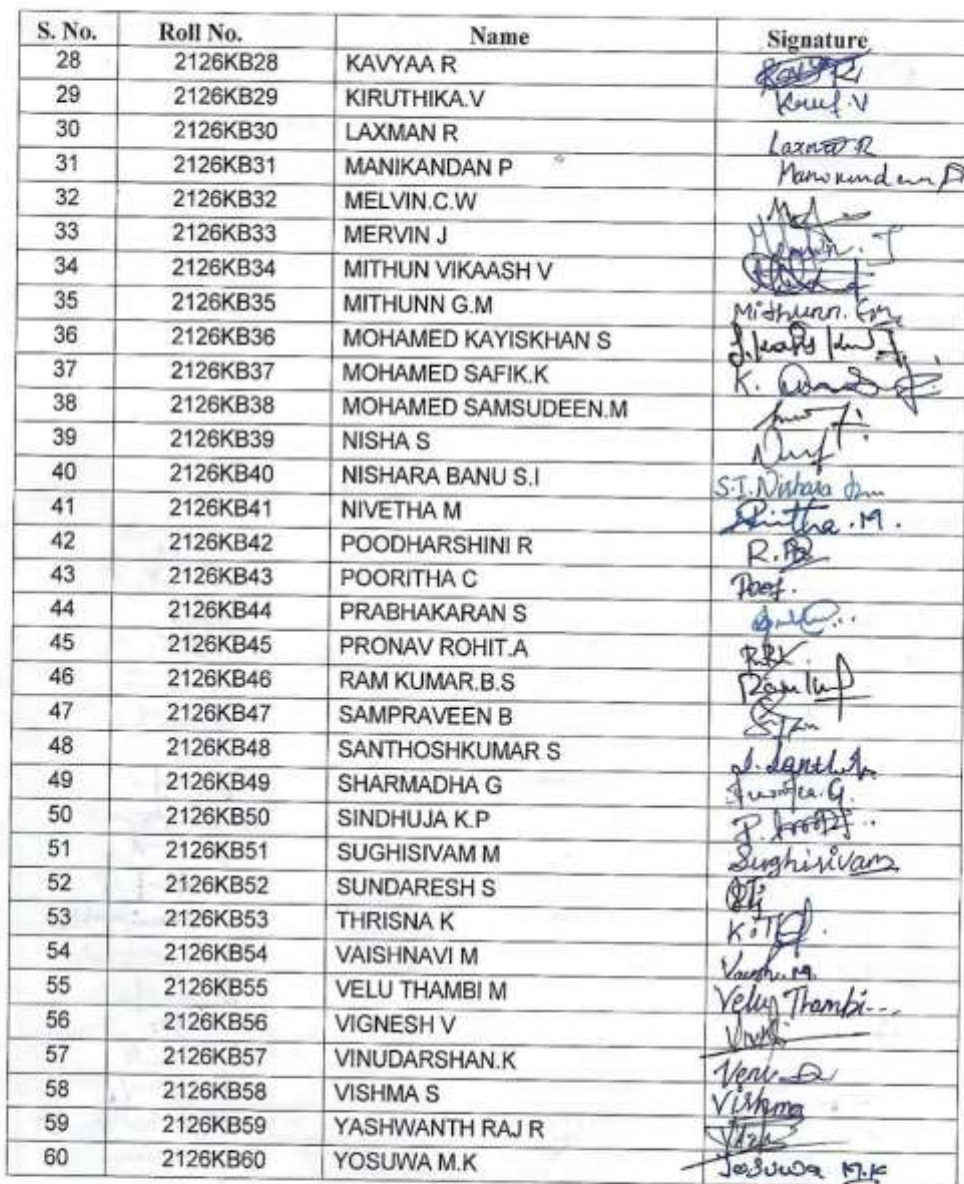 S. No. Roll No. Name Signature
28 2126KB28 KAVYAA R
29 2126KB29 KIRUTHIKA.V
30 2126KB30 LAXMAN R Laxman R
31 2126KB31 MANIKANDAN P
32 2126KB32 MELVIN.C.W
33 2126KB33 MERVIN J
34 2126KB34 MITHUN VIKAASH V
35 2126KB35 MITHUNN G.M Mithunn. G.M
36 2126KB36 MOHAMED KAYISKHAN S
37 2126KB37 MOHAMED SAFIK.K K.
38 2126KB38 MOHAMED SAMSUDEEN.M
39 2126KB39 NISHA S
40 2126KB40 NISHARA BANU S.I S.I. Nishara
41 2126KB41 NIVETHA M
42 2126KB42 POODHARSHINI R
43 2126KB43 POORITHA C
44 2126KB44 PRABHAKARAN S
45 2126KB45 PRONAV ROHIT.A
46 2126KB46 RAM KUMAR.B.S
47 2126KB47 SAMPRAVEEN B
48 2126KB48 SANTHOSHKUMAR S
49 2126KB49 SHARMADHA G
50 2126KB50 SINDHUJA K.P
51 2126KB51 SUGHISIVAM M Sughisivam
52 2126KB52 SUNDARESH S
53 2126KB53 THRISNA K
54 2126KB54 VAISHNAVI M
55 2126KB55 VELU THAMBI M Velu Thambi...
56 2126KB56 VIGNESH V
57 2126KB57 VINUDARSHAN.K
58 2126KB58 VISHMA S Vishma
59 2126KB59 YASHWANTH RAJ R
60 2126KB60 YOSUWA M.K Josuwa M.K